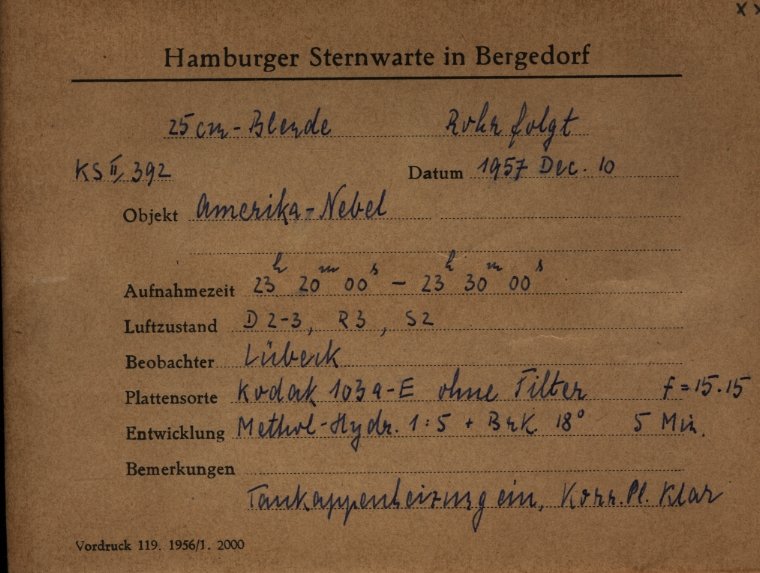 x x
Hamburger Sternwarte in Bergedorf
25cm-Blende Rohr folgt
KS II, 392 Datum 1957 Dec. 10
Objekt Amerika-Nebel
Aufnahmezeit 23h 20m 00s - 23h 30m 00s
Luftzustand D 2-3, R3, S2
Beobachter Lübeck
Plattensorte Kodak 103a-E ohne Filter f=15.15
Entwicklung Methol-Hydr. 1:5 + BrK 18° 5 Min.
Bemerkungen
Taukappenheizung ein, Korr. Pl. Klar
Vordruck 119. 1956/1. 2000